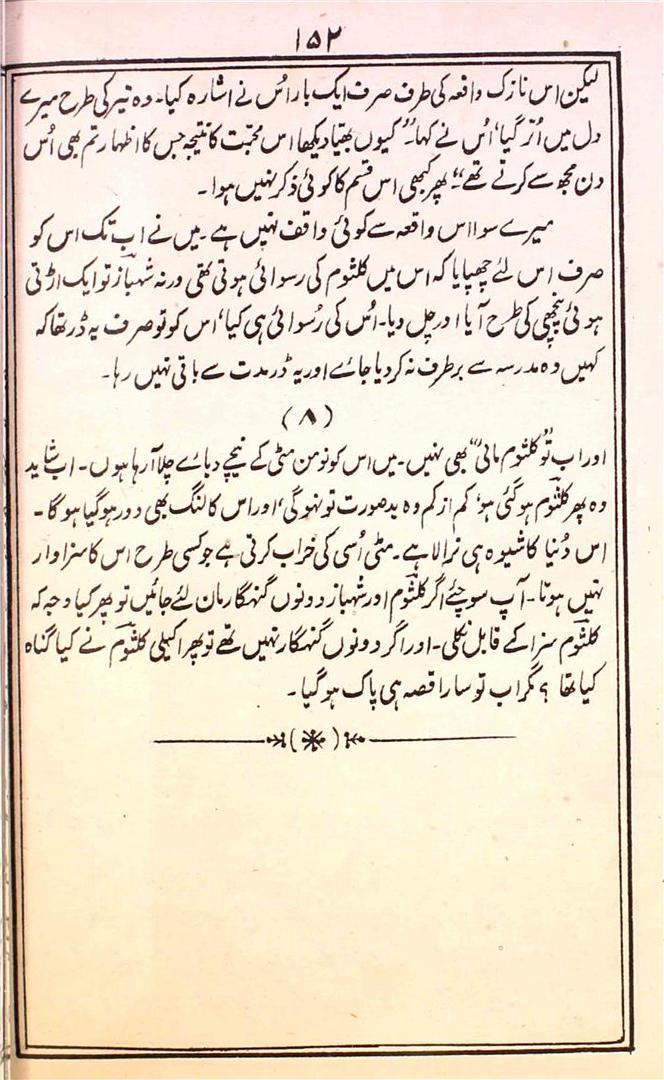 ۱۵۲
لیکن اس نازک واقعہ کی طرف صرف ایک بار اُس نے اشارہ کیا۔ وہ تیر کی طرح میرے
دل میں اُتر گیا، اُس نے کہا۔ "کیوں بھیّا دیکھا اس محبّت کا نتیجہ جس کا اظہار تم بھی اُس
دن مجھ سے کرتے تھے"۔ پھر کبھی اس قسم کا کوئی ذکر نہیں ہوا۔
میرے سوا اس واقعہ سے کوئی واقف نہیں ہے۔ میں نے اب تک اس کو
صرف اس لئے چھپایا کہ اس میں کلثوم کی رسوائی ہوتی تھی ورنہ شہباز تو ایک اڑتی
ہوئی پنچھی کی طرح آیا اور چل دیا۔ اُس کی رُسوائی ہی کیا، اس کو تو صرف یہ ڈر تھا کہ
کہیں وہ مدرسہ سے برطرف نہ کر دیا جائے اور یہ ڈر مدت سے باقی نہیں رہا۔
(۸)
اور اب تو "کلثوم مائی" بھی نہیں۔ میں اس کو نو من مٹی کے نیچے دبائے چلا آ رہا ہوں۔ اب شاید
وہ پھر کلثوم ہو گئی ہو، کم از کم وہ بد صورت تو نہوگی، اور اس کا لنگ بھی دور ہو گیا ہوگا۔
اس دُنیا کا شیوہ ہی نرالا ہے۔ مٹی اُسی کی خراب کرتی ہے جو کسی طرح اس کا سزاوار
نہیں ہوتا۔ آپ سوچئے اگر کلثوم اور شہباز دونوں گنہگار مان لئے جائیں تو پھر کیا وجہ کہ
کلثوم سزا کے قابل نکلی۔ اور اگر دونوں گنہگار نہیں تھے تو پھر اکیلی کلثوم نے کیا گناہ
کیا تھا ؟ مگر اب تو سارا قصہ ہی پاک ہو گیا۔